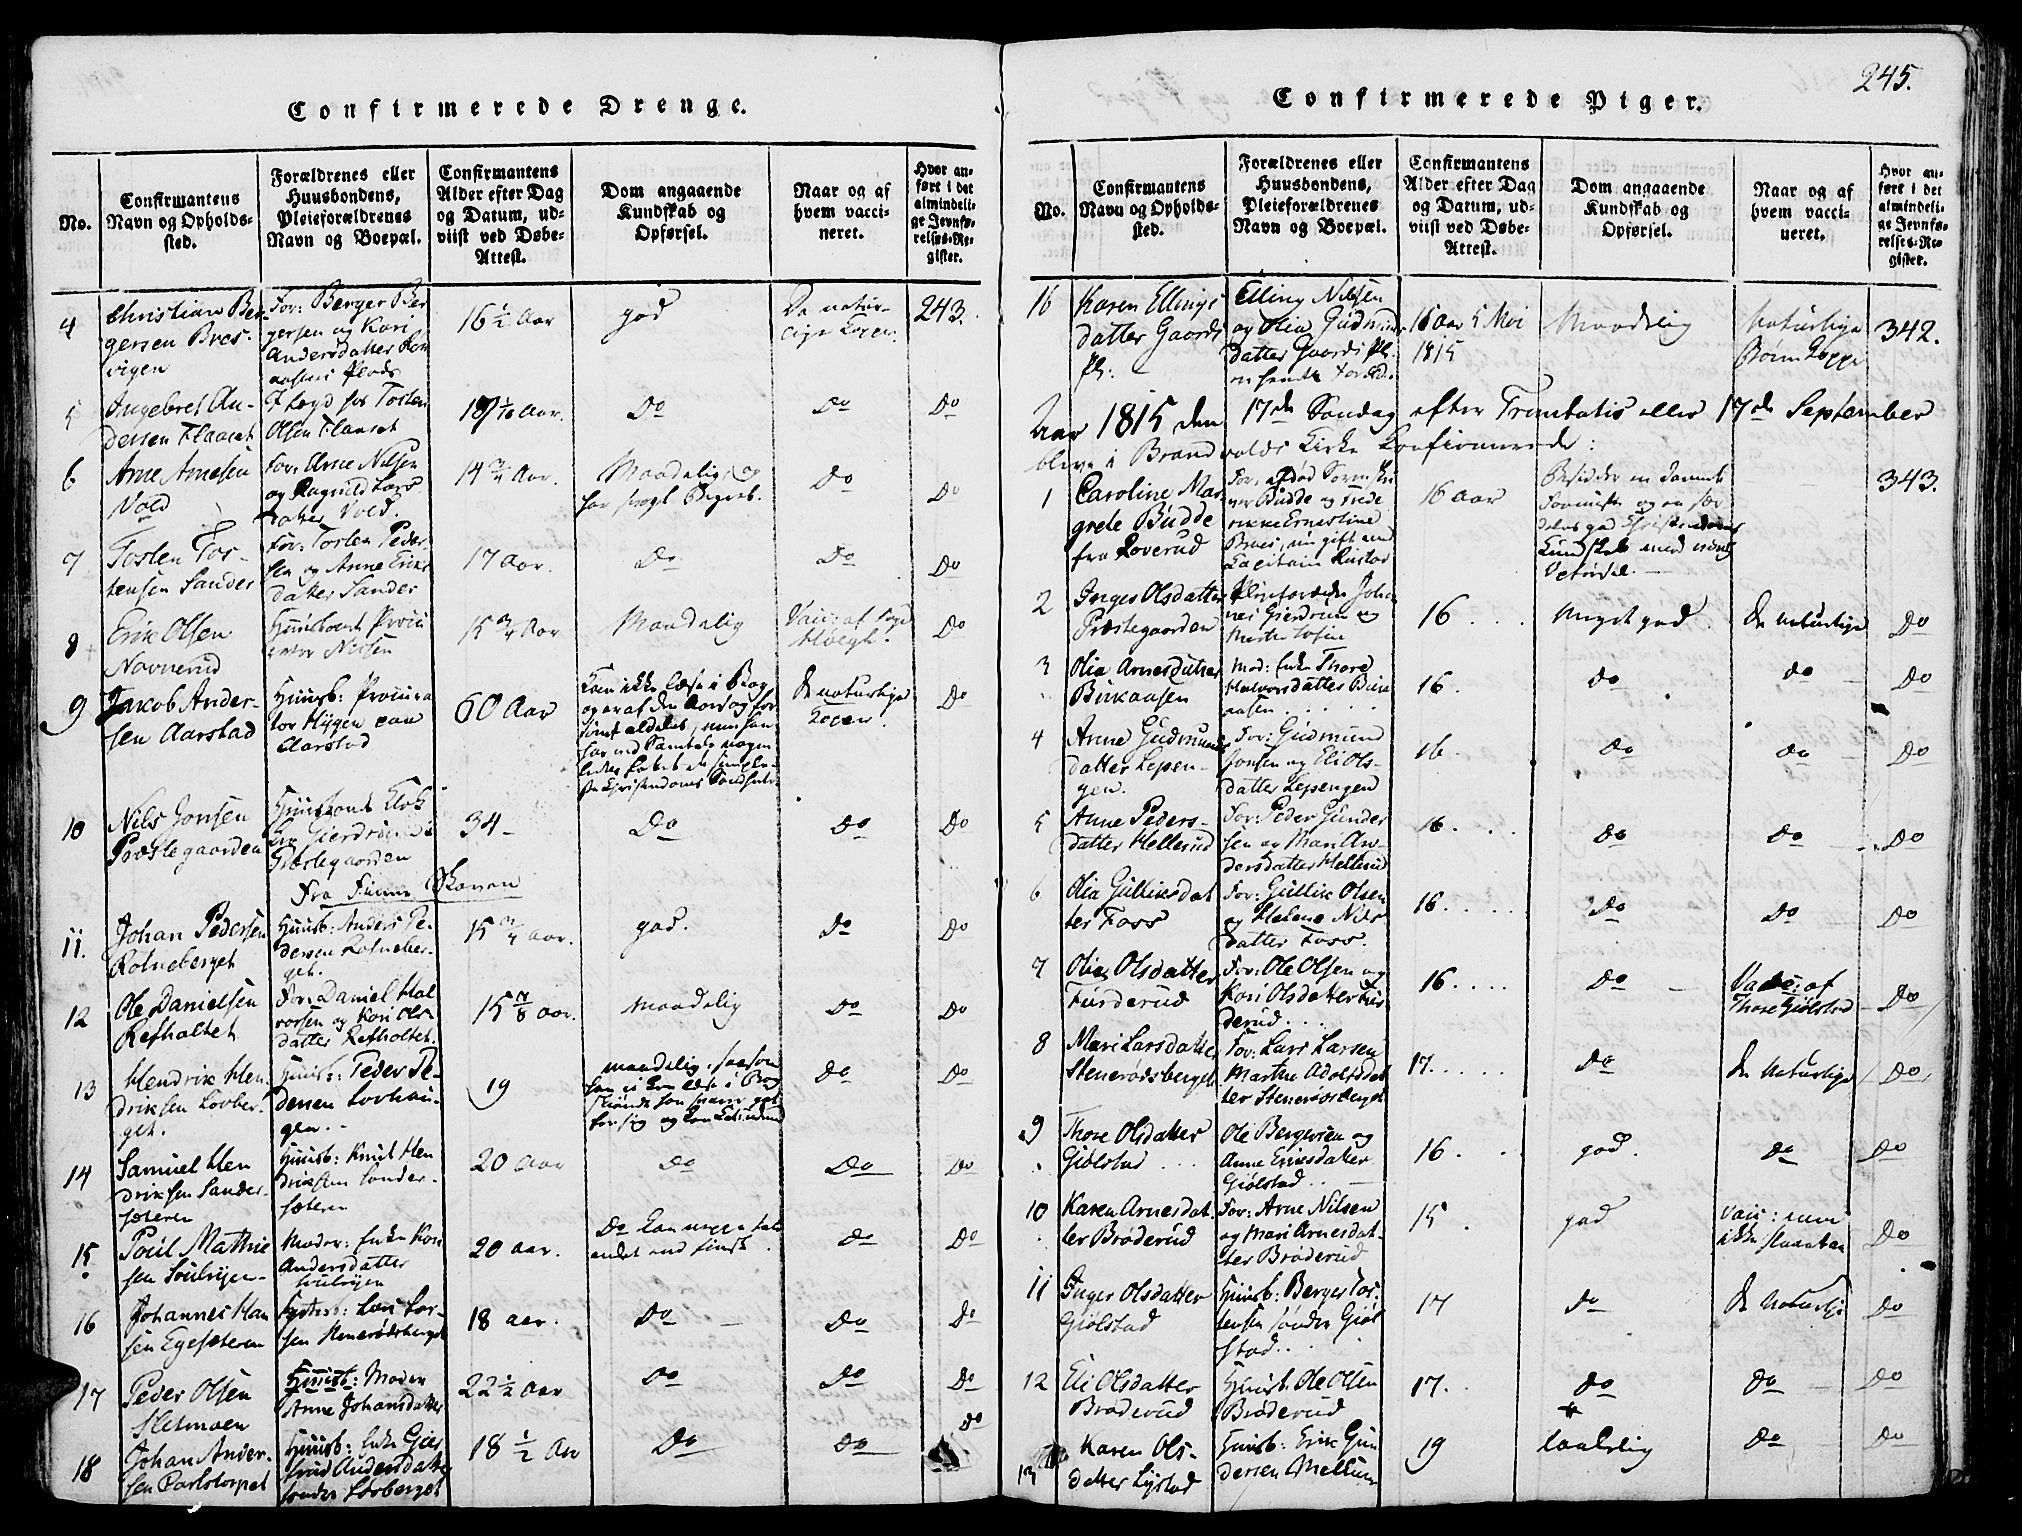 245.
Confirmerede Drenge.
No.
Confirmantens
Navn og Opholds-
sted.
Forældrenes eller
Huusbondens,
Pleieforældrenes
Navn og Boepæl.
Confirmantens
Alder efter Dag
og Datum, ud-
viist ved Døbe-
Attest.
Dom angaaende
Kundskab og
Opførsel.
Naar og af
hvem vacci-
neret.
Hvor an-
ført i det
almindeli-
ge Jevnfø-
relses-Re-
gister.
4
Christian Ber-
gersen Bres-
vigen
For: Berger Ber
gersen og Kari
Andersdatter
16 1/2 Aar
god
De natur-
243.
5
Ingebret An-
dersen Flaaset
Tosten
Olsen Flaaset
Aar.
Do
Do
Do
6
Arne Arnesen
Vold
For: Arne Nilsen
og Ragnild Lars
datter Vold.
14 3/4 Aar.
Maadelig, og
har svagt Begreb.
Do
Do
7
Tosten Tos-
tensen Sander
For: Tosten Peder-
sen og Anne Eriks
datter Sander
17 Aar.
Do
Do
Do
8
Erik Olsen
Navnerud
Huusbond Procu
rator Nilsen
15 3/4 Aar
Maadelig
Vacc: af
Do
9
Jakob Ander-
sen Aarstad
Huusb: Procura
tor Hygen paa
Aarstad
60 Aar
Kan ikke læse i Bog
De naturlige
Koper.
Do
10
Nils Jonsen
Præstegaarden
Huusbond Klok
ker Gierdrum i
Præstegaarden
34
Do
Do
Do
Fra Finne Skoven
11.
Johan Pedersen
Rotneberget
Huusb: Anders Pe
dersen Rotneber-
get.
15 3/4 aar.
god.
Do
Do
12
Ole Danielsen
Refholtet
For: Daniel Hal
vorsen og Kari Ols
datter Refholtet.
15 7/8 aar.
maadelig
Do
Do
13
Hendrik Hen
driksen Lovber-
get.
Huusb: Peder Pe-
dersen Lovhau-
gen.
19
maadelig, saasom
han ei kan læse i Bog
Do
Do
14
Samuel Hen
driksen Sander-
sæteren
Huusb: Knud Hen
driksen Sonder-
sæteren
20 Aar
Do
Do
Do
15
Poul Mathie
sen
Moder: Enke Kari
Andersdatter
20 aar.
Do
Do
Do
16
Johannes Han
sen Egesæteren
Huusb: Lars Lar-
sen Stenerødsberget
18 aar.
Do
Do
Do
17
Peder Olsen
Sletmoen
Huusb: Moder
Anne Johansdatter
22 1/2 Aar
Do
Do
Do
18
Johan Ander-
sen Carlstorpet
Huusb: Enke Gier
trud Andersdatter
18 1/2 Aar
Do
Do
Do
Confirmerede Piger.
No.
Confirmantens
Navn og Opholds-
sted.
Forældrenes eller
Huusbondens,
Pleieforældrenes
Navn og Boepæl.
Confirmantens
Alder efter Dag
og Datum, ud-
viist ved Døbe-
Attest.
Dom angaaende
Kundskab og
Opførsel.
Naar og af
hvem vacci-
neret.
Hvor an-
ført i det
almindeli-
ge Jevnfø-
relses-Re-
gister.
16
Karen Ellings
datter Gaards
Pl:
Elling Nilsen
og Olia Gudmunds
datter Gaards Pl.
16 aar 5 Mai
1815
Maadelig
Naturlige
342.
Aar 1815 den 17de Søndag efter Trinitatis eller 17de September
bleve i Brandvolds Kirke Confirmerede:
1
Caroline Mar
grete Budde
fra Roverud
16 aar
343.
2
Inger Olsdatter
Præstegaarden
Pleieforældre Johan
nes Gierdrum og
16
Meget god.
De Naturlige
Do
3
Olia Arnesdatter
Birkaasen
Mod: Enke Thore
Halvorsdatter Birk
aasen
16.
do
do
Do
4
Anne Gudmunds
datter Lepen-
gen.
For: Gudmund
Jonsen og Eli Ols-
datter Lepengen
16.
Do
Do
Do
5
Anne Peders-
datter Hellerud
For: Peder Gunder
sen og Mari An-
dersdatter Hellerud
16.
Do
Do
Do
6
Olia Gulliksdat
ter Foss
For: Gullik Olsen
og Helene Nils
datter Foss.
16.
Do
Do
Do
7
Olia Olsdatter
Furderud
For: Ole Olsen og
Kari Olsdatter Fur
derud.
16.
Do
Vacc: af
Thore Giølstad
Do
8
Mari Larsdatter
Stenerødsberget
For: Lars Larsen
Marthe Adolfsdat
ter Stenerødsberget
17.
Do
De Naturlige
Do
9
Thore Olsdatter
Giølstad
Ole Bergersen og
Anne Eriksdatter
Giølstad
16.
god.
Do
Do
10
Karen Arnesdat.
ter Brøderud
For: Arne Nilsen
og Mari Arnesdat-
ter Brøderud
15
god
Vacc: men
ikke
Do
11
Inger Olsdatter
Giølstad
Huusb: Berger Tos-
tensen søndre Giøl
stad.
17
do
De Naturlige
Do
12
Eli Olsdatter
Brøderud
Huusb. Ole Olsen
Brøderud
17.
Do
Do
Do
13
Karen Ols-
datter Lystad
Huusb: Erik Gun
dersen Mellum
19
taalelig
Do
Do